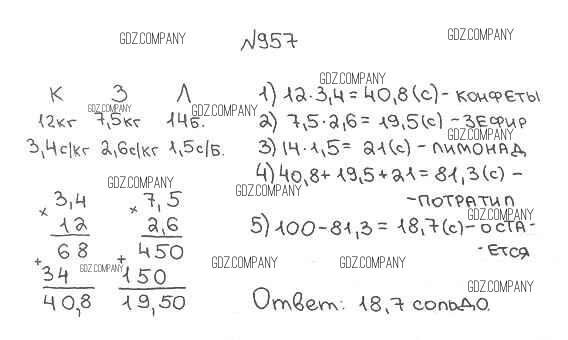 GDZ.COMPANY
№957
GDZ.COMPANY
К З Л
GDZ.COMPANY
12кг 7,5кг 14б.
GDZ.COMPANY
3,4с/кг 2,6с/кг 1,5с/б.
GDZ.COMPANY
× 3,4
12
68
+
34
40,8
GDZ.COMPANY
× 7,5
2,6
450
+
150
19,50
GDZ.COMPANY
1) 12·3,4=40,8(с)-КОНФЕТЫ
2) 7,5·2,6=19,5(с)-ЗЕФИР
GDZ.COMPANY
3) 14·1,5=21(с)-ЛИМОНАД
4) 40,8+19,5+21=81,3(с)-
GDZ.COMPANY
-ПОТРАТИЛ
GDZ.COMPANY
5) 100-81,3=18,7(с)-ОСТА-
-ЕТСЯ
GDZ.COMPANY
GDZ.COMPANY
GDZ.COMPANY
Ответ: 18,7 сольдо.